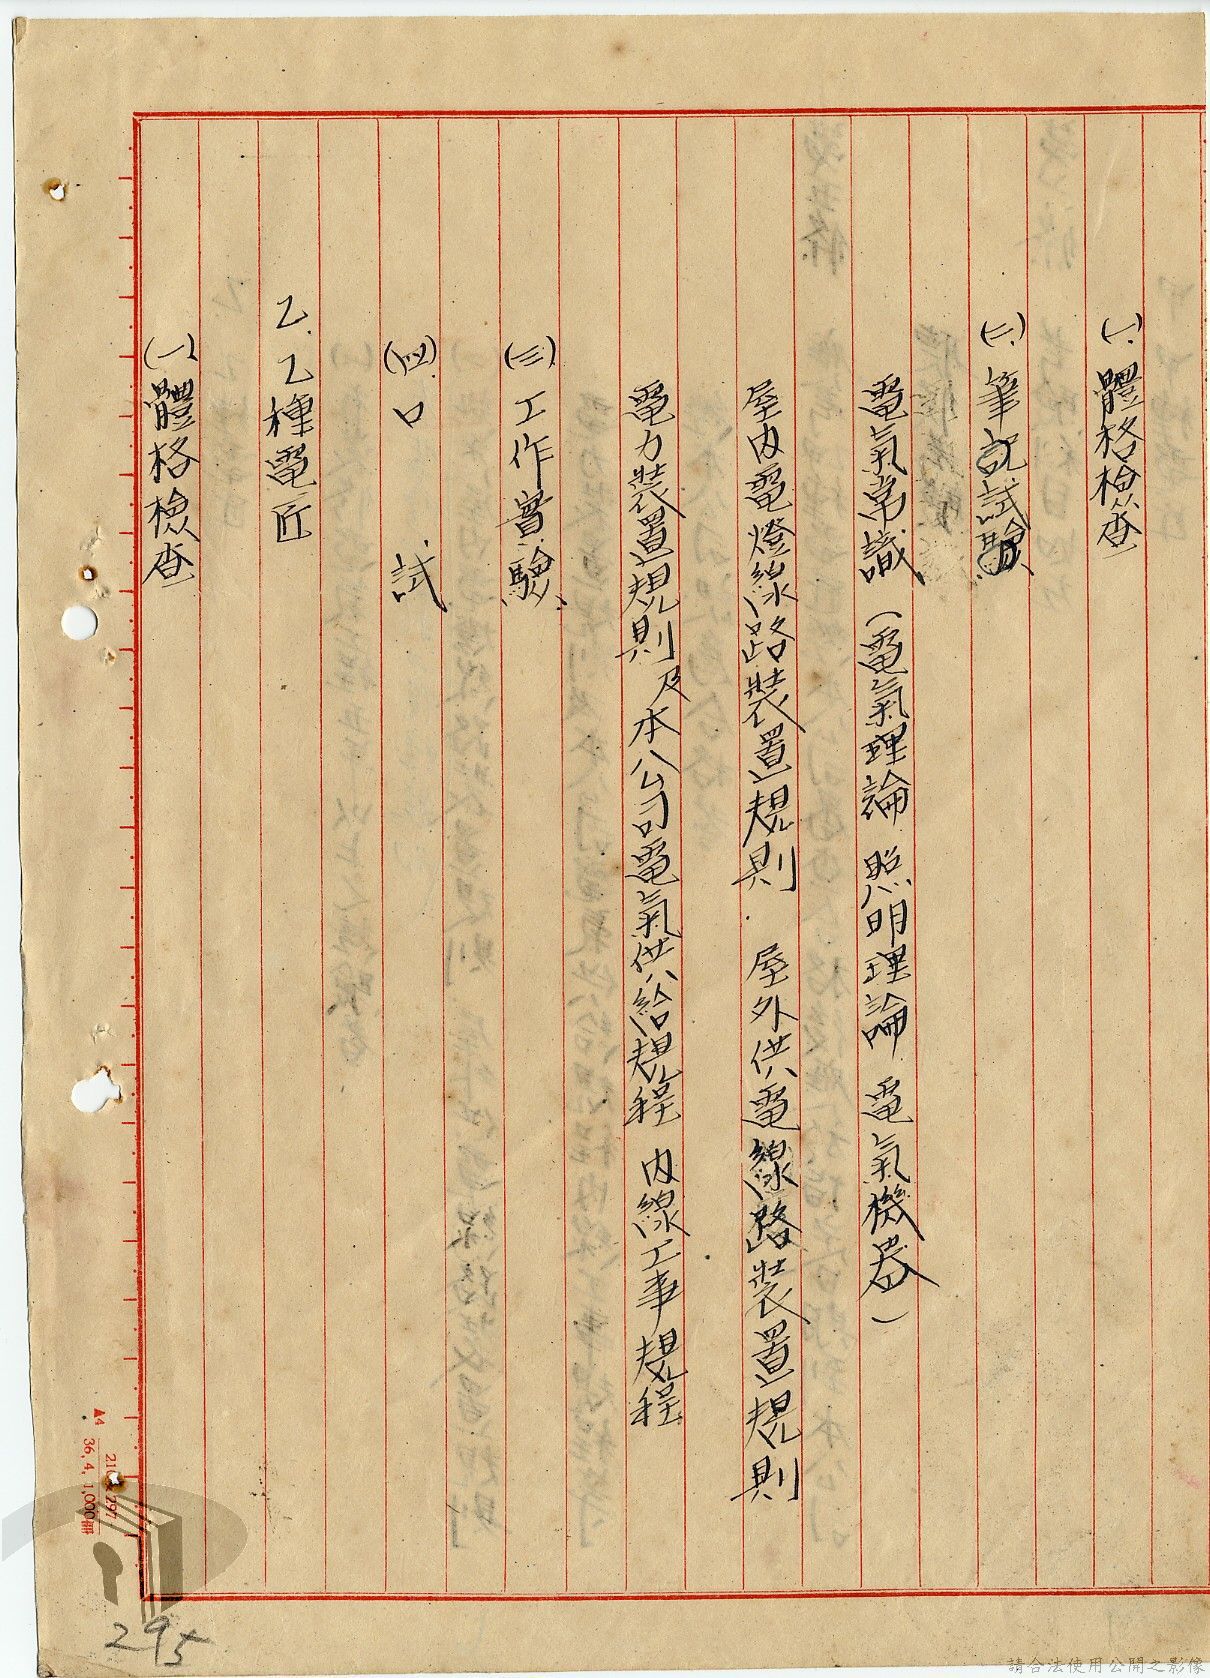 (一)體格檢查
(二)筆記試驗
電氣常識(電氣理論 照明理論 電氣機器)
屋内電燈線路裝置規則 . 屋外供電線路裝置規則
電力裝置規則及本公司電氣供給規程 内線工事規程
(三)工作實驗
(四)口試
乙.乙種電匠
(一)體格檢查
▲4
36,4,1,000冊
295
請合法使用公開之影像